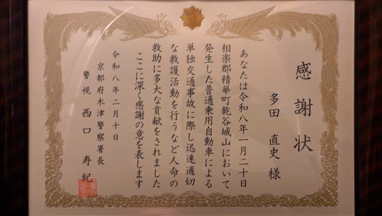 感謝状
多田直史様
あなたは令和八年一月二十日
相楽郡精華町乾谷城山において
発生した普通乗用自動車による
単独交通事故に際し迅速適切
な救護活動を行うなど人命の
救助に多大な貢献をされました
ここに深く感謝の意を表します
令和八年二月十日
京都府木津警察署長
警視 西口寿紀